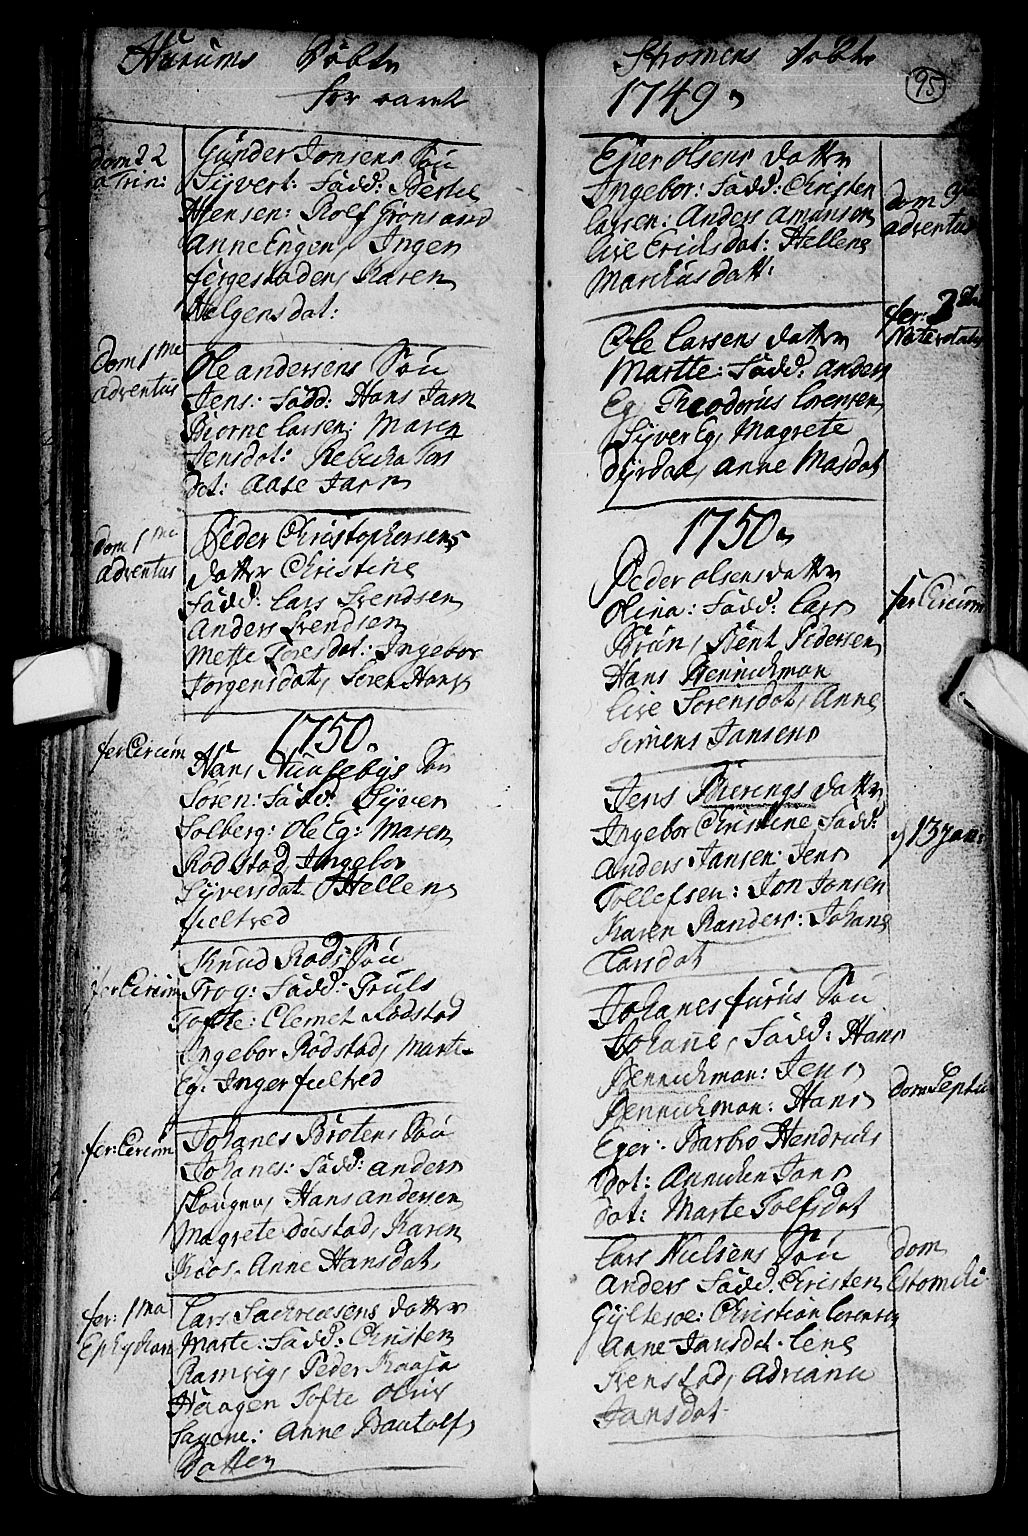 Hurums Döbte
for aaret
dom 22
a Trin:
Gunder Jonsens Søn
Syvert: Fadd: Bertel
Hensen: Rolf Gronsand
Anne Engen, Ingen
fergestaden, Karen
Helgensdat:
dom 1me
adventus
Ole andersens Søn
Jens: Fadd: Hans Jarn
Biorne Larsen: Maren
Jensdat: Rebecka Tors
dat: Aase Jarn
dom 1me
adventus
Peder Christophersens
datter Christine
Fadd: Lars Svendsen
Anders Svendsen
Mette Toresdat: Ingebor
Jorgensdat, Soren Hans
1750.
fer Circum
Hans Huusebys Søn
Søren: Fadd: Syver
Solberg: Ole Eg: Maren
Rødstad, Ingebor
Syversdat Hellene
fieltved
fer Circum
Knud Rods Søn
Trog: Fadd: Truls
Tofte: Clemet Rødstad
Ingebor Rødstad, Marte
Eg: Inger fieltved
fer: Circum
Johanes Brotens Søn
Johanes: Fadd: anders
Skougen, Hans andersen
Magrete dustad, Karen
Kroos. Anne Hansdat,
fer: 1ma
Ephyphan
Lars Sachriesens datter
Marte: Fadd: Christen
Ramvig, Peder Kaasa
Haagen Tofte
Sagene: Anne Bautolfs
Datter
Stromens Døbte
95
1749
Ejler Olsens datter
Ingebor: Fadd: Christen
Larsen: Anders Amunsen
Live Ericksdat: Hellene
Marckusdatt:
dom
adventus
Ole Larsens datter
Martte: Fadd: anders
Eg, Theodorus Lorensen
Syver Eg, Magrete
Dyrdal, anne Masdat
fer: 3
Natevitatis
1750
Peder Olsens datter
Olina: Fadd: Lars
Brøn, Bent Pedersen
Hans Bennichman
Live Sorensdat, Anne
Simens Jansens
fer Circum
Jens Bierings datter
Ingebor Christine, Fadd:
Anders Jansen: Jens
Tollefsen: Jon Jonsen
Karen Randers: Johane
Larsdat
d 13 Jan:
Johanes furus Søn
Johanne, Fadd: Hans
Bennichman: Jens
Bennichman: Hans
Eger. Barbro Hendrichs
dat: Annichen Jans
dat: Marte Tolfsdat
dom Septu
Lars Nielsens Søn
Anders Fadd: Christen
Gyltesoe: Christian Lorensen
Anne Jansdat. Lene
Svenstad, Adriana
Jansdat.
dom
Estomihi